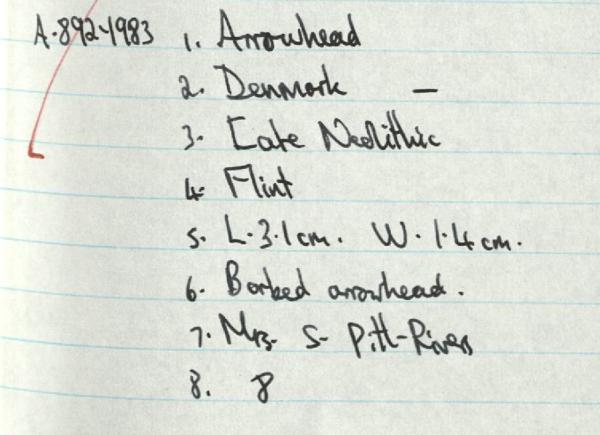 A.892-1983 1. Arrowhead
2. Denmark —
3. Late Neolithic
4. Flint
5. L.3.1cm. W.1.4cm.
6. Barbed arrowhead.
7. Mrs. S- Pitt-Rivers
8. 8